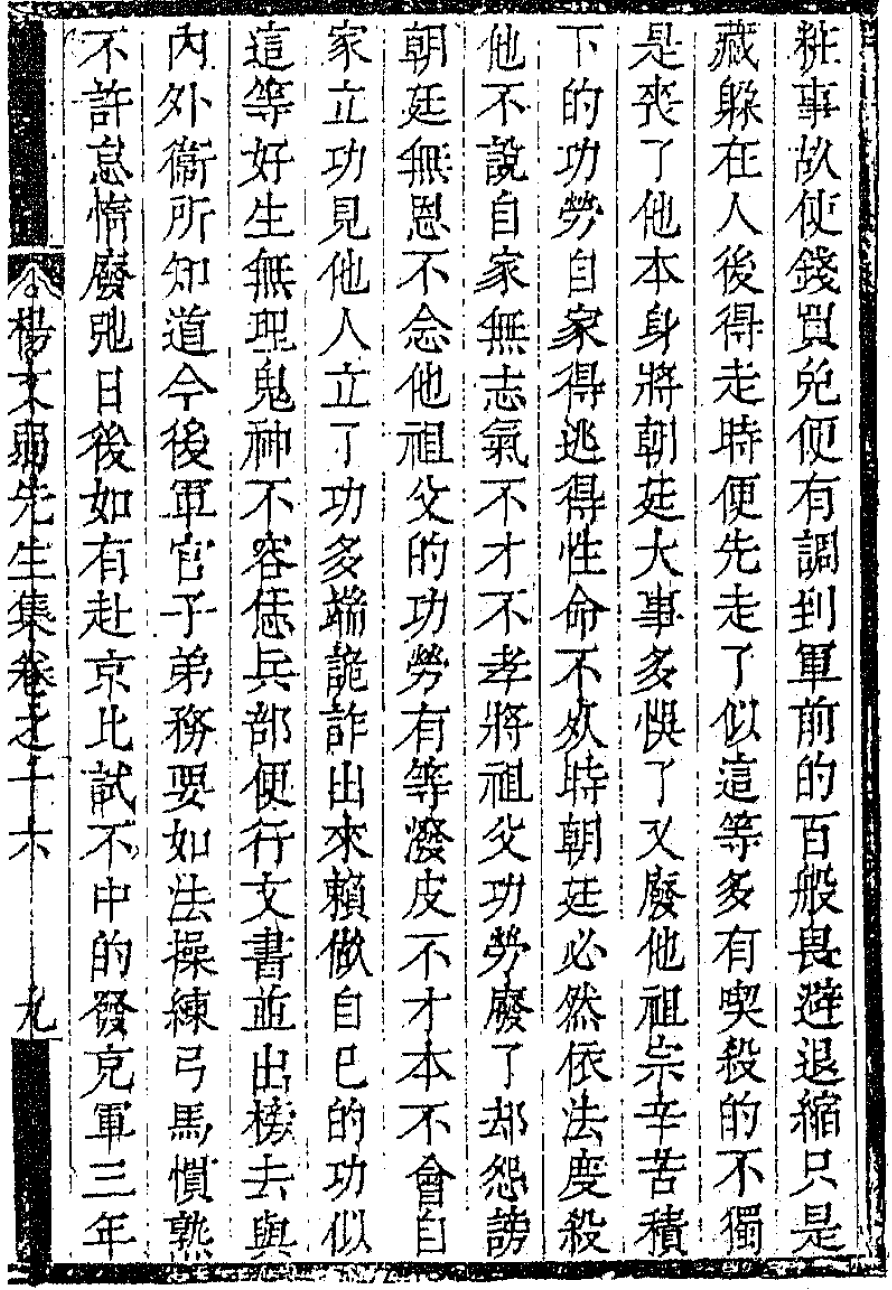 粧事故使錢買免便有調到軍前的百般畏避退縮只是
藏躲在人後得走時便先走了似這等多有喫殺的不獨
是喪了他本身將朝廷大事多悞了又廢他祖宗辛苦積
下的功勞自家得逃得性命不死時朝廷必然依法度殺
他不說自家無志氣不才不孝將祖父功勞廢了却怨謗
朝廷無恩不念他祖父的功勞有等潑皮不才本不會自
家立功見他人立了功多端詭詐出來賴做自已的功似
這等好生無理鬼神不容恁兵部便行文書並出榜去與
內外衞所知道今後軍官子弟務要如法操練弓馬慣熟
不許怠惰廢弛日後如有赴京比試不中的發充軍三年
楊文弱先生集卷之十六 九